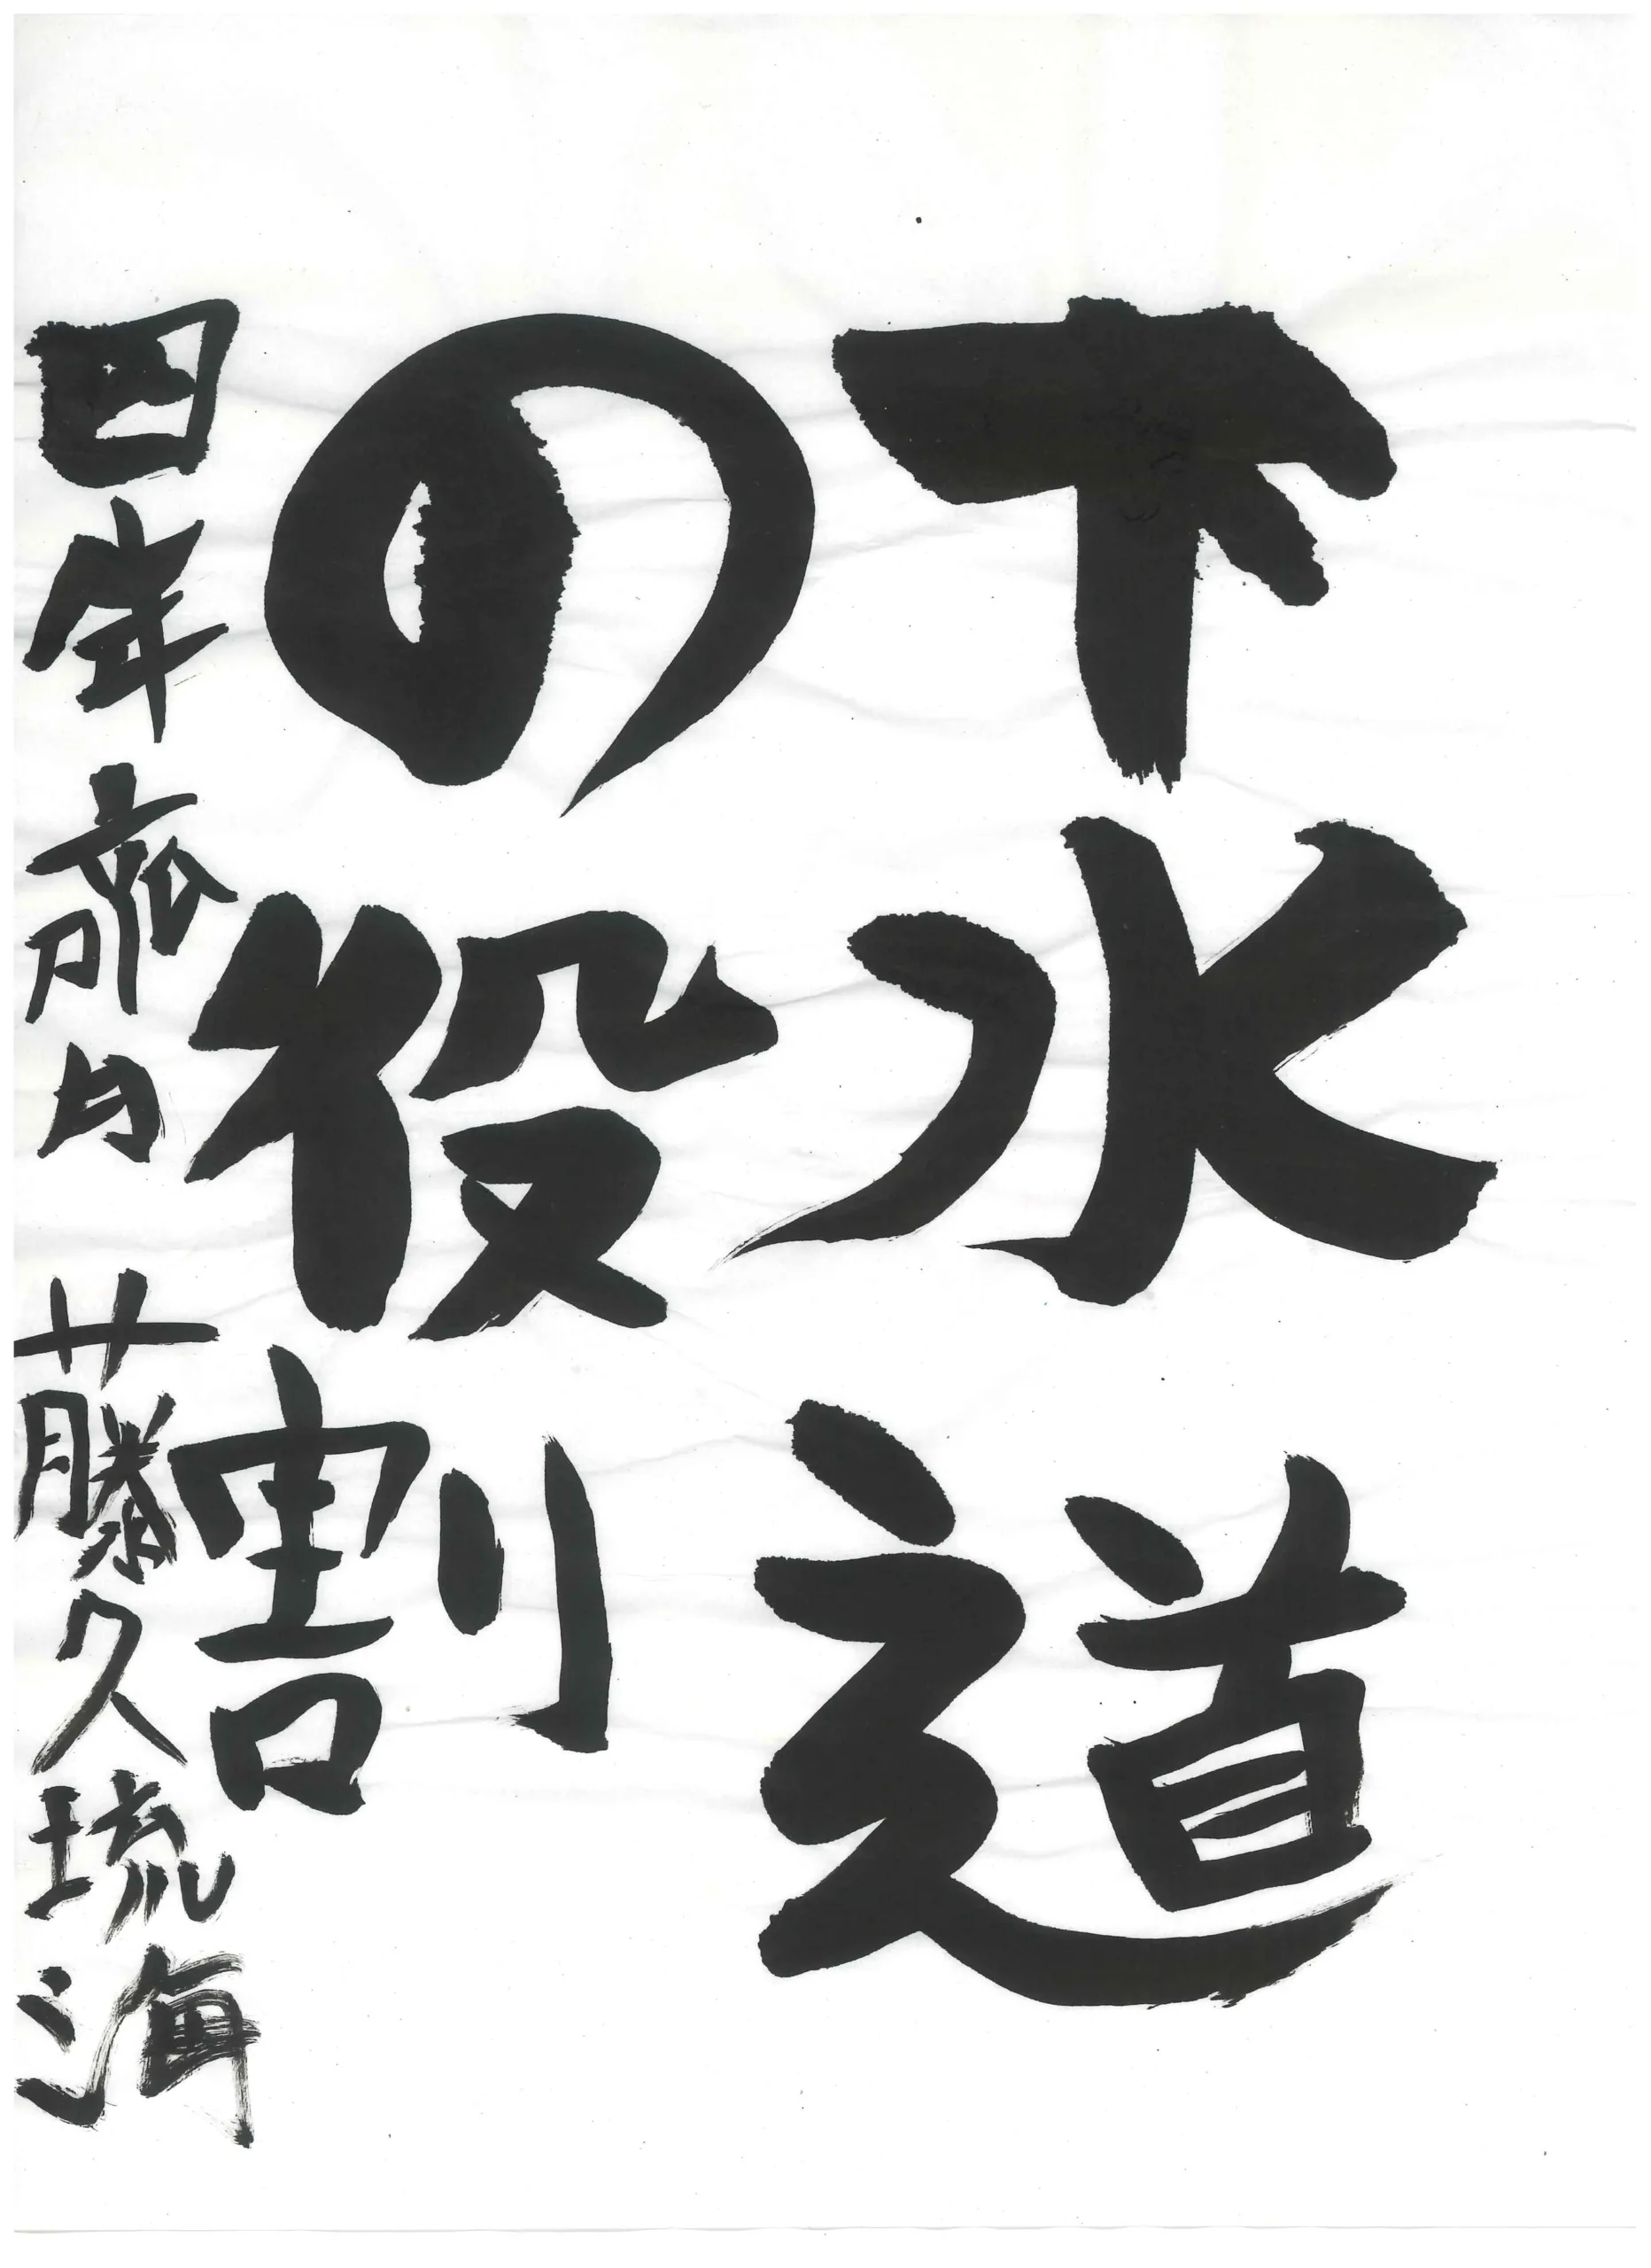 下水道
の役割
四年 齋月 藤久琉海